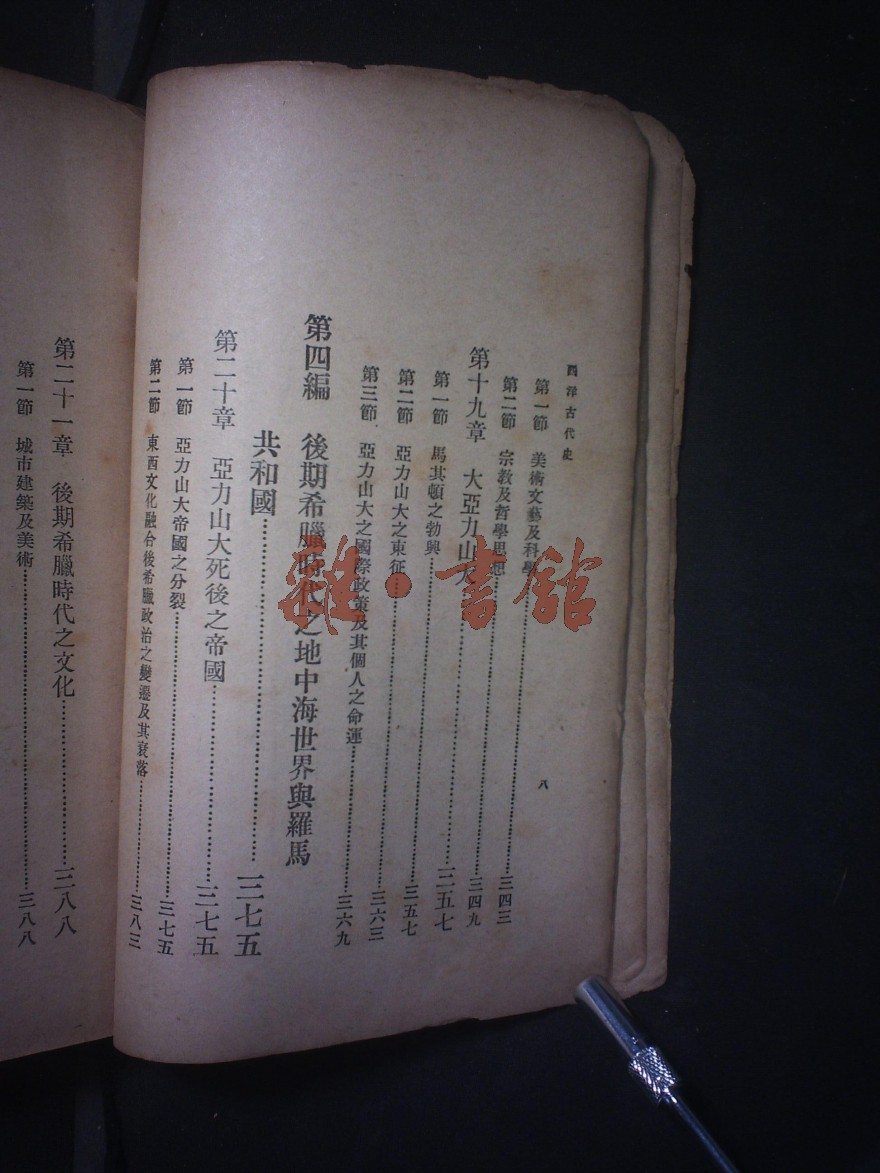 西洋古代史
第一節 美術文藝及科學……三四三
第二節 宗教及哲學思想……三四九
第十九章 大亞力山大……三五七
第一節 馬其頓之勃興……三五七
第二節 亞力山大之東征……三六三
第三節 亞力山大之國際政策及其個人之命運……三六九
第四編 後期希臘時代之地中海世界與羅馬
共和國……三七五
第二十章 亞力山大死後之帝國……三七五
第一節 亞力山大帝國之分裂……三七五
第二節 東西文化融合後希臘政治之變遷及其衰落……三八三
八
第二十一章 後期希臘時代之文化……三八八
第一節 城市建築及美術……三八八
雜·書館